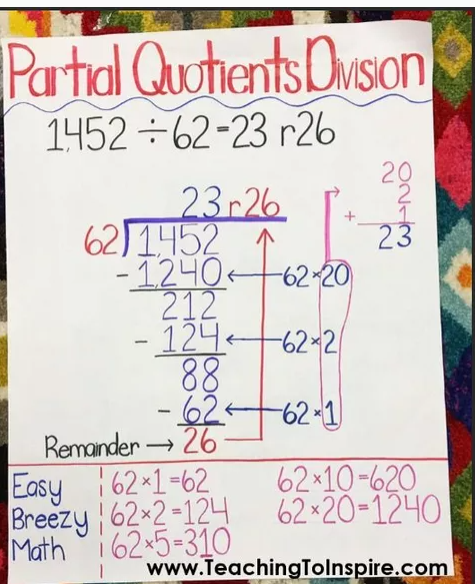 Partial Quotients Division
1,452 ÷ 62 = 23 r26
20
2
+ 1
23
23 r26
62 1,452
- 1,240 ← 62×20
212
- 124 ← 62×2
88
- 62 ← 62×1
Remainder → 26
Easy
Breezy
Math
62×1=62
62×2=124
62×5=310
62×10=620
62×20=1240
www.TeachingToInspire.com